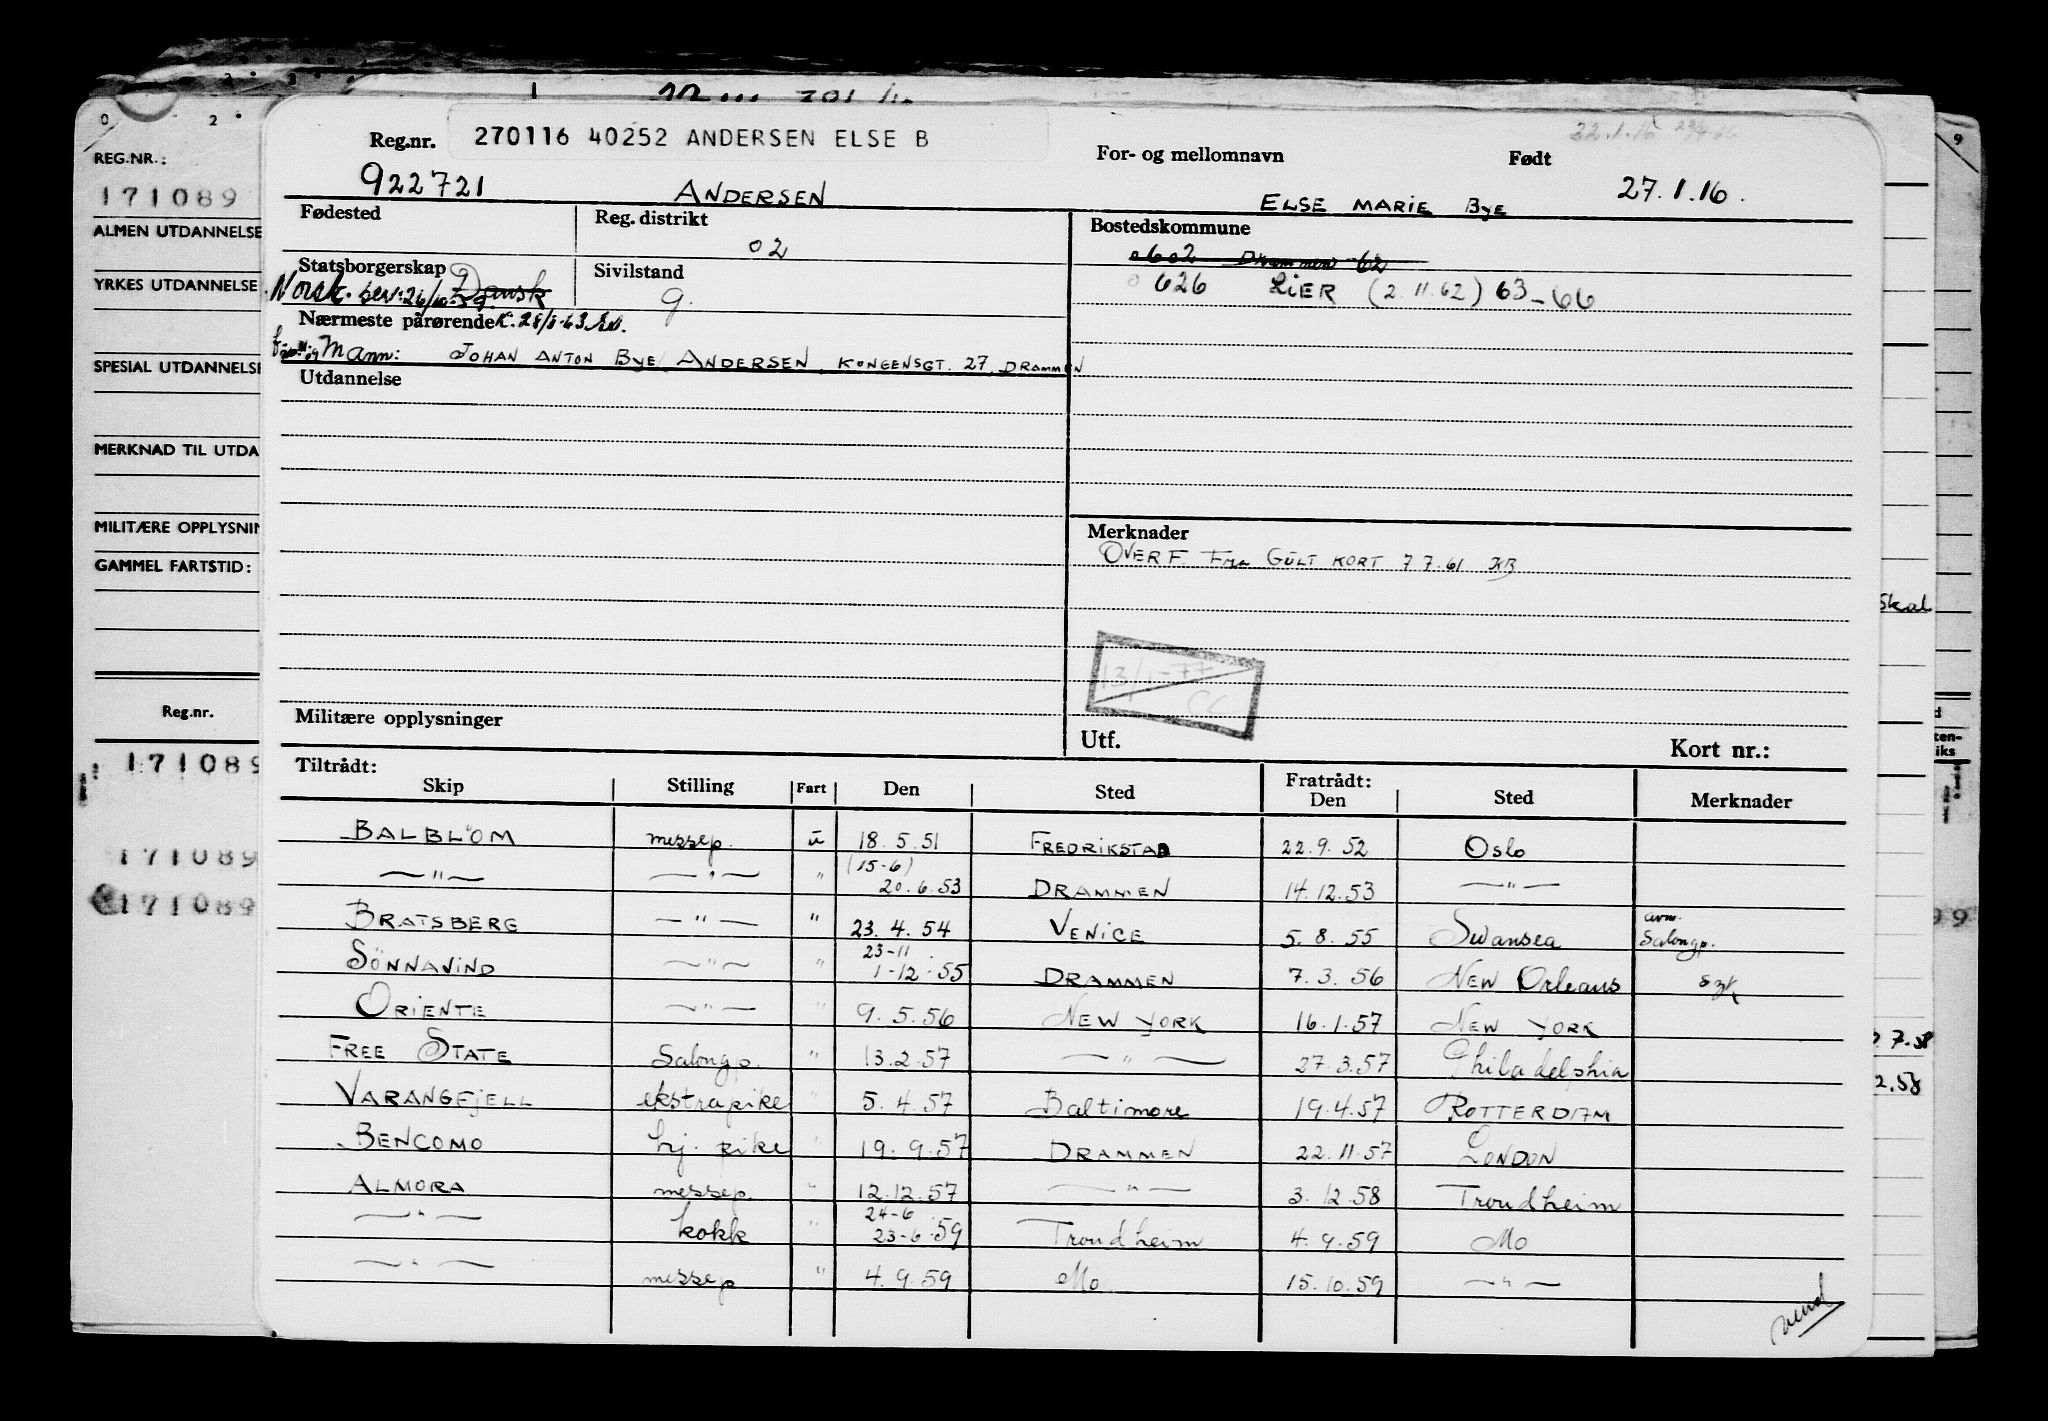 0 2 9
REG.NR.:
171089
ALMEN UTDANNELSE
YRKES UTDANNELSE
SPESIAL UTDANNELSE
MERKNAD TIL UTDA
MILITÆRE OPPLYSNIN
GAMMEL FARTSTID:
Reg.nr.
171089
171089
171089
Reg.nr. 270116 40252 ANDERSEN ELSE B For- og mellomnavn Født
922721 ANDERSEN ELSE MARIE Bye 27.1.16.
Fødested Reg. distrikt Bostedskommune
02 0602 Drammen 62
Statsborgerskap Sivilstand
Norsk. bev: 26/10-59. Dansk g. 0626 LIER (2.11.62) 63-66
Nærmeste pårørende K. 28/1-63
Mann: JOHAN ANTON Bye ANDERSEN, KONGENSGT. 27, DRAMMEN
Utdannelse
Merknader
OVERF. FRA GULT KORT 7 7.61 KB
13/1-77
CC
Militære opplysninger Utf. Kort nr.:
Tiltrådt: Fratrådt:
Skip Stilling Fart Den Sted Den Sted Merknader
BALBLOM messep. u 18.5.51 FREDRIKSTAD 22.9.52 Oslo
—"— —"— " (15-6) 20.6.53 DRAMMEN 14.12.53 —"—
BRATSBERG —"— " 23.4.54 VENICE 5.8.55 Swansea avm. Salongp.
SÖNNAVIND —"— " 23-11 1-12.55 DRAMMEN 7.3.56 NEW Orleans syk
ORIENTE —"— " 9.5.56 NEW YORK 16.1.57 NEW YORK
FREE STATE Salongp. " 13.2.57 —"— 27.3.57 Philadelphia
VARANGFJELL ekstrapike " 5.4.57 Baltimore 19.4.57 ROTTERDAM
BENCOMO hj. pike " 19.9.57 DRAMMEN 22.11.57 LONDON
ALMORA messep. " 12.12.57 —"— 3.12.58 Trondheim
—"— kokk " 24-6 23-6.59 Trondheim 4.9.59 Mo
—"— messep " 4.9.59 Mo 15.10.59 —"—
vend
Skal
7.58
2.58